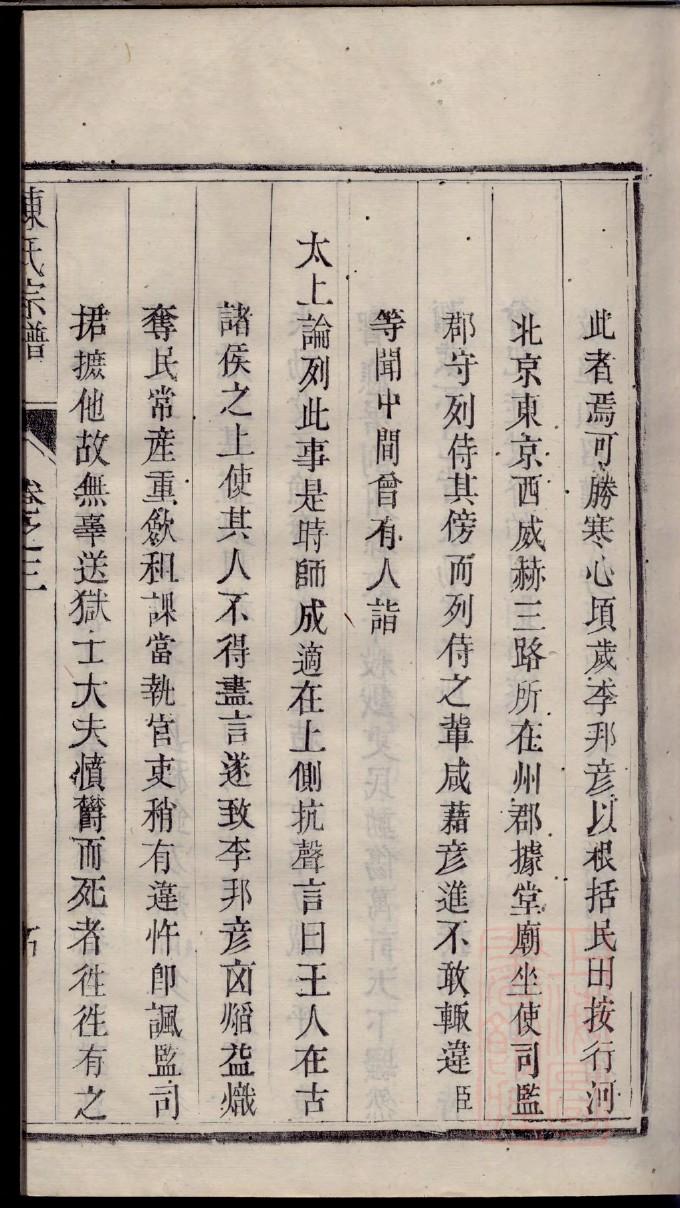 此者焉可勝寒心頃歲李邦彦以根括民田按行河
北京東京西威赫三路所在州郡據堂廟坐使司監
郡守列侍其傍而列侍之輩咸藉彦進不敢輙違臣
等聞中間曾有人詣
太上論列此事是時師成適在上側抗聲言曰王人在古
諸侯之上使其人不得盡言遂致李邦彦囟燄益熾
奪民常産重歛租課當執官吏稍有違忤卽諷監司
捃摭他故無辜送獄士大夫憤欝而死者徃徃有之
陳氏宗譜
卷之三